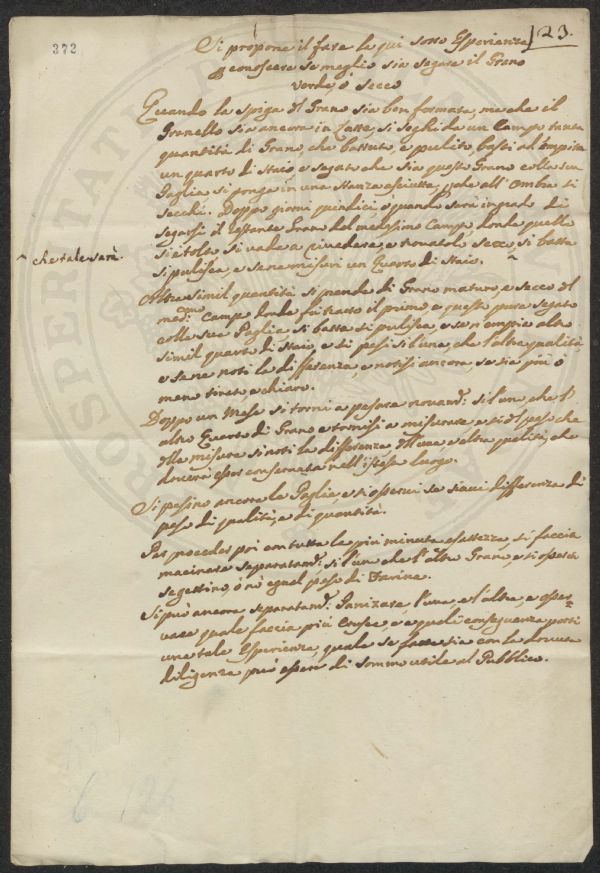 372
123.
Si propone il fare le qui sotto Esperienze
conoscere se meglio sia segare il Grano
verde, ò secco
Quando la spiga del Grano sia ben formata, ma che il
Granello sia ancora in Latte, si seghi da un Campo tanta
quantità di Grano, che battuto, e pulito, basti ad empire
un quarto di Staio, e segato che sia questo Grano colla sua
Paglia si ponga in una Stanza asciutta, che all' Ombra si
secchi. Doppo giorni quindici, ò quando sarà in grado di
segarsi il restante Grano del medesimo Campo, donde quello
si è tolto si vada a rivedere, e trovatolo secco, si batta
^ che tale sarà
si pulisca, e se ne misuri un Quarto di Staio.
Altra simil quantità si prenda di Grano maturo, e secco del
med.mo Campo donde fù tratto il primo e questo pure segato
colla sua Paglia si batta si pulisca, e se n'empia altro
simil quarto di Staio, e si pesi sì l'uno, che l'altra qualità,
e se ne noti la differenza, e notisi ancora, se sia più ò
meno tirato e chiaro.
Doppo un Mese si torni a pesare sì l'uno che l'
altro Quarto di Grano e tornisi a misurare e sì del peso che
della misura si noti la differenza dell'una e altra qualità, che
doverà esser conservata nell'istesso luogo.
Si pesino ancora le Paglie, e si osservi se siavi differenza di
peso di qualità, e di quantità.
Per proceder poi con tutta la più minuta esattezza, si faccia
macinare separatam.e sì l'uno che l'altro Grano, e si osservi
se gettino, ò nò egual peso di Farina.
Si può ancora separatam.e Panizare l'una e l'altra, e osser-
vare quale faccia più e quali conseguenze porti
una tale Esperienza, quale se fatta sia con la dovuta
diligenza può essere di sommo utile al Pubblico.
6 126